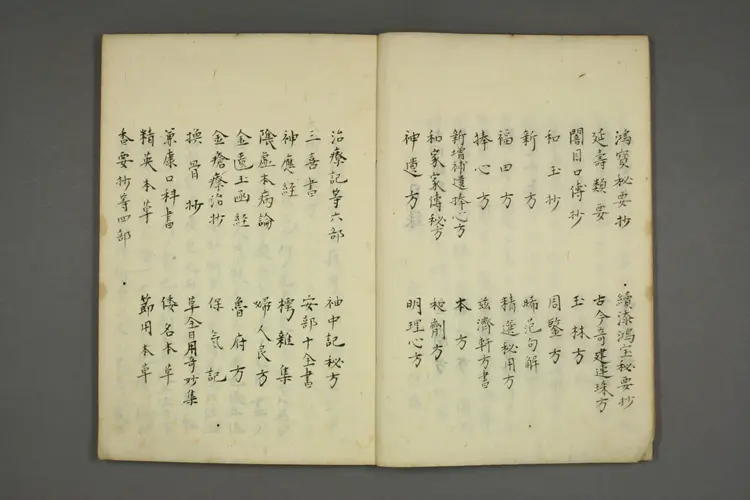 鴻寶秘要抄　續添鴻宝秘要抄
延壽類要　古今奇建連珠方
閣目口傳抄　玉林方
和玉抄　周鑒方
新方　晞范句解
福田方　精選秘用方
捧心方　茲濟軒方書
新增補遺捧心方　本方
和家家傳秘方　秘劑方
神遺方　明理心方
治療記等六部　袖中記秘方
三喜書　安部十全書
神應經　樗雜集
陰虛本病論　婦人良方
金匱玉函經　魯府方
金瘡療治抄　保氣記
換骨抄　草全日用奇妙集
兼康口科書　倭名本草
精英本草　節用本草
香要抄等四部